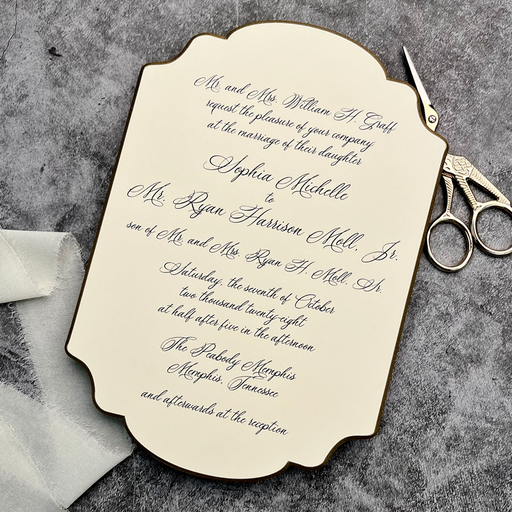 Mr. and Mrs. William H. Graff
request the pleasure of your company
at the marriage of their daughter
Sophia Michelle
to
Mr. Ryan Harrison Moll, Jr.
son of Mr. and Mrs. Ryan H. Moll, Sr.
Saturday, the seventh of October
two thousand twenty-eight
at half after five in the afternoon
The Peabody Memphis
Memphis, Tennessee
and afterwards at the reception